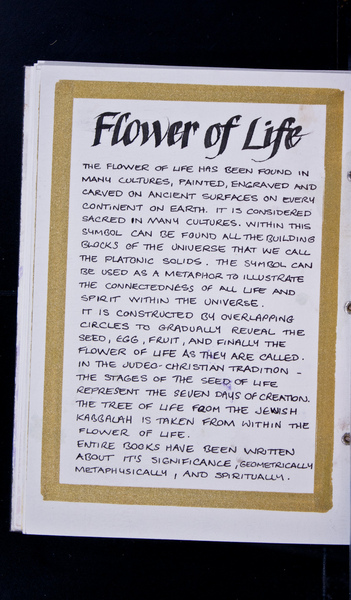 Flower of Life
THE FLOWER OF LIFE HAS BEEN FOUND IN
MANY CULTURES, PAINTED, ENGRAVED AND
CARVED ON ANCIENT SURFACES ON EVERY
CONTINENT ON EARTH. IT IS CONSIDERED
SACRED IN MANY CULTURES. WITHIN THIS
SYMBOL CAN BE FOUND ALL THE BUILDING
BLOCKS OF THE UNIVERSE THAT WE CALL
THE PLATONIC SOLIDS. THE SYMBOL CAN
BE USED AS A METAPHOR TO ILLUSTRATE
THE CONNECTEDNESS OF ALL LIFE AND
SPIRIT WITHIN THE UNIVERSE.
IT IS CONSTRUCTED BY OVERLAPPING
CIRCLES TO GRADUALLY REVEAL THE
SEED, EGG, FRUIT, AND FINALLY THE
FLOWER OF LIFE AS THEY ARE CALLED.
IN THE JUDEO-CHRISTIAN TRADITION -
THE STAGES OF THE SEED OF LIFE
REPRESENT THE SEVEN DAYS OF CREATION.
THE TREE OF LIFE FROM THE JEWISH
KABBALAH IS TAKEN FROM WITHIN THE
FLOWER OF LIFE.
ENTIRE BOOKS HAVE BEEN WRITTEN
ABOUT IT'S SIGNIFICANCE, GEOMETRICALLY
METAPHYSICALLY, AND SPIRITUALLY.